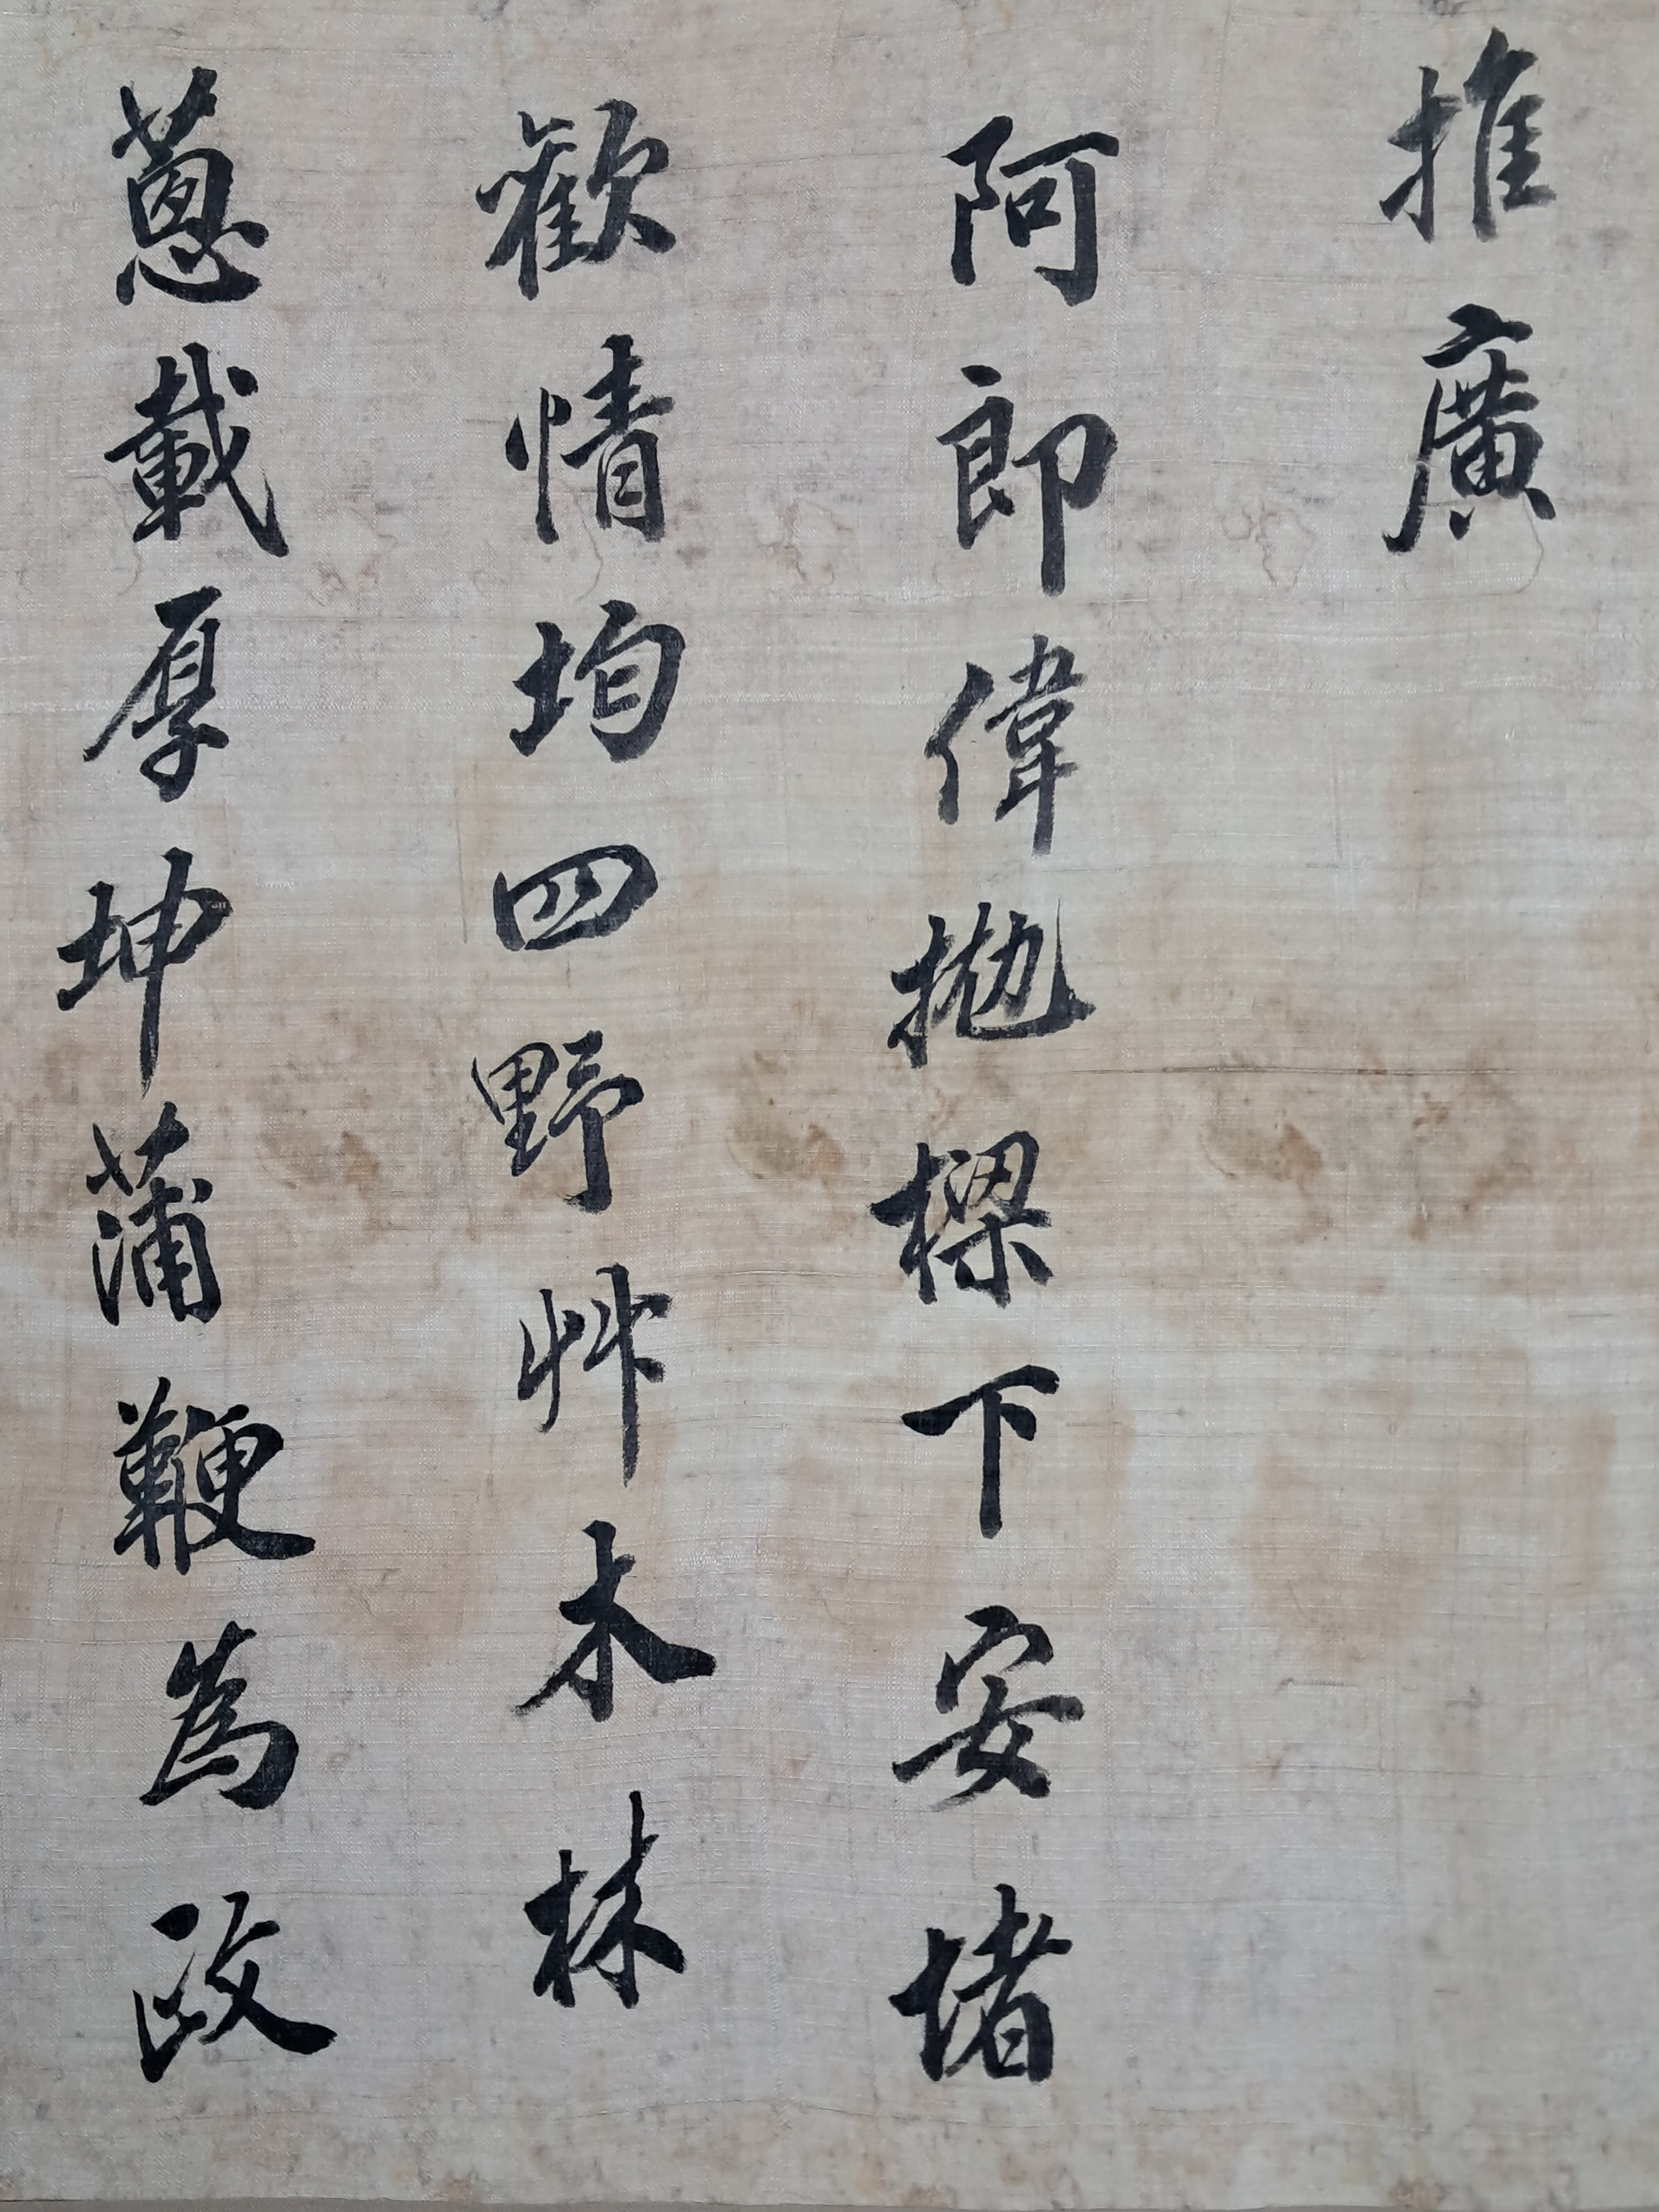 推廣
阿郎偉拋樑下安堵
歡情均四野艸木林
蔥載厚坤蒲鞭為政